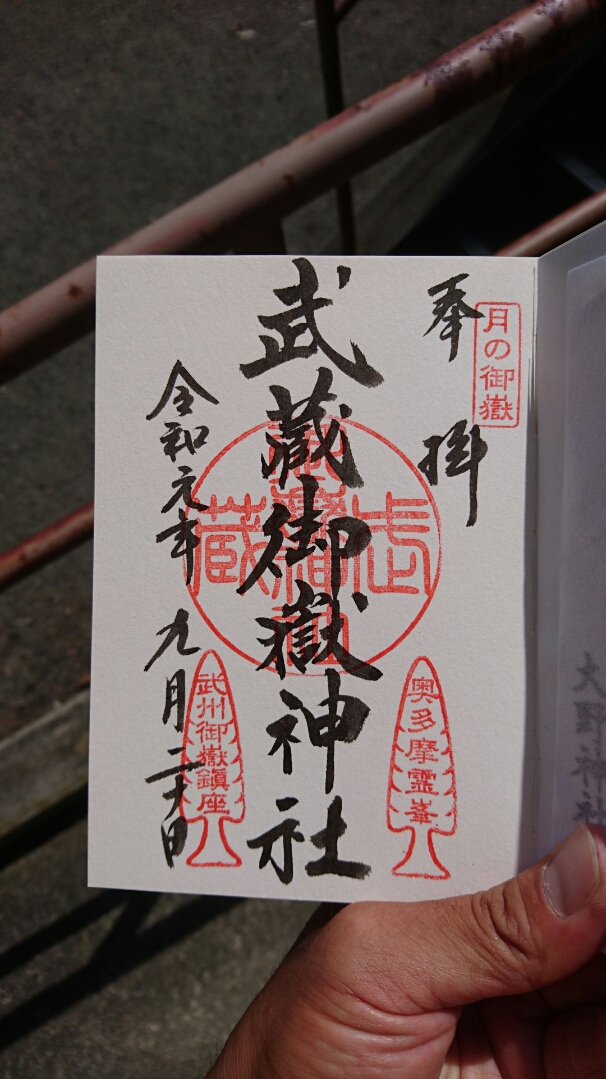 月の御嶽
奉拝
奥多摩霊峯
武蔵御嶽神社
武蔵
令和元年九月二十日
武州御嶽鎮座
大野神社